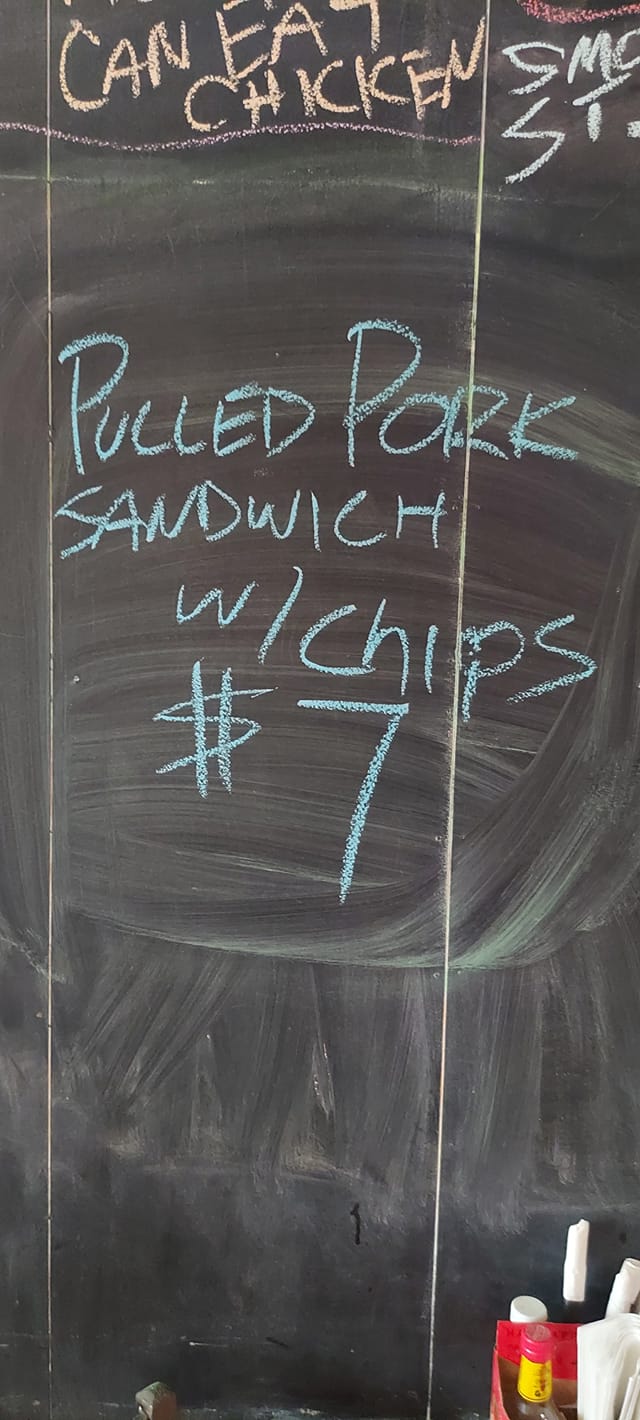 CAN EAT
CHICKEN
PULLED PORK
SANDWICH
W/CHIPS
$7